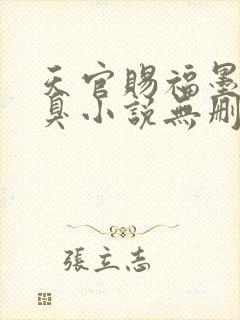 天官賜福墨
臭小説無刪
張立志